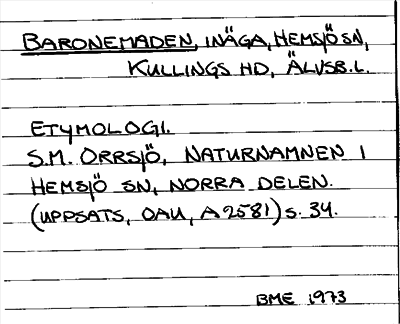 BARONEMADEN, INÄGA, HEMSJÖ SN,
KULLINGS HD, ÄLVSB.L.
ETYMOLOGI.
S.M. ORRSJÖ, NATURNAMNEN I
HEMSJÖ SN, NORRA DELEN.
(UPPSATS, OAU, A 2581) S. 34.
BME 1973